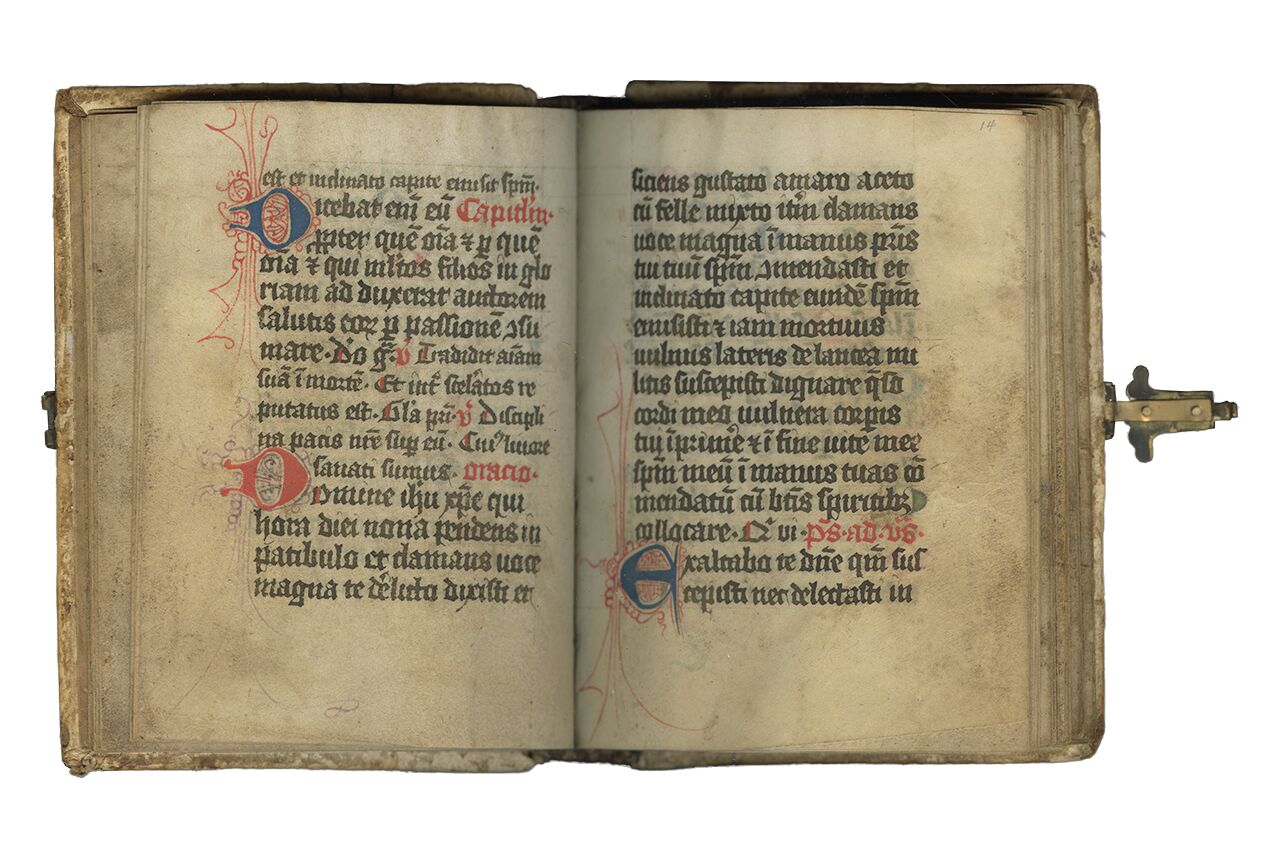 est et inclinato capite emisit sp̄m̄.
Dicebat em̄ eū Capitl'm.
Propter quē oīa ⁊ ꝑ quē
oīa ⁊ qui ml'tos filios in glo
riam ad duxerat auctorem
salutis eoꝝ ꝑ passionē ꝯsu
mare. Dō gr̄. v̄ Tradidit aīam
suā ī mortē. Et int̄ scel'atos re
putatus est. Gl'a pr̄i. v̄ Discipli
na pacis nr̄e sup eū. Cui⁹ livore
sanati sumus. oracio.
Domine ihū xp̄e qui
hora diei nona pendens in
patibulo et clamans voce
magna te derelictū dixisti et
14
siciens gustato amaro aceto
cū felle mixto itm̄ clamans
voce magna ī manus pr̄is
tui tuū sp̄m̄ ꝯmendasti et
inclinato capite eiudē sp̄m̄
emisisti ⁊ iam mortuus
vulnus lateris de lancea mi
litis suscepisti dignare q̄s̄o
cordi meo vulnera corpis
tui īprim'e ⁊ ī fine vite mee
sp̄m̄ meū ī manus tuas cō
mendatū cū btīs spiritibꝫ
collocare. Q' vi. p̄s. ad. vs̄.
Exaltabo te dn̄e qm̄ sus
cepisti nec delectasti in